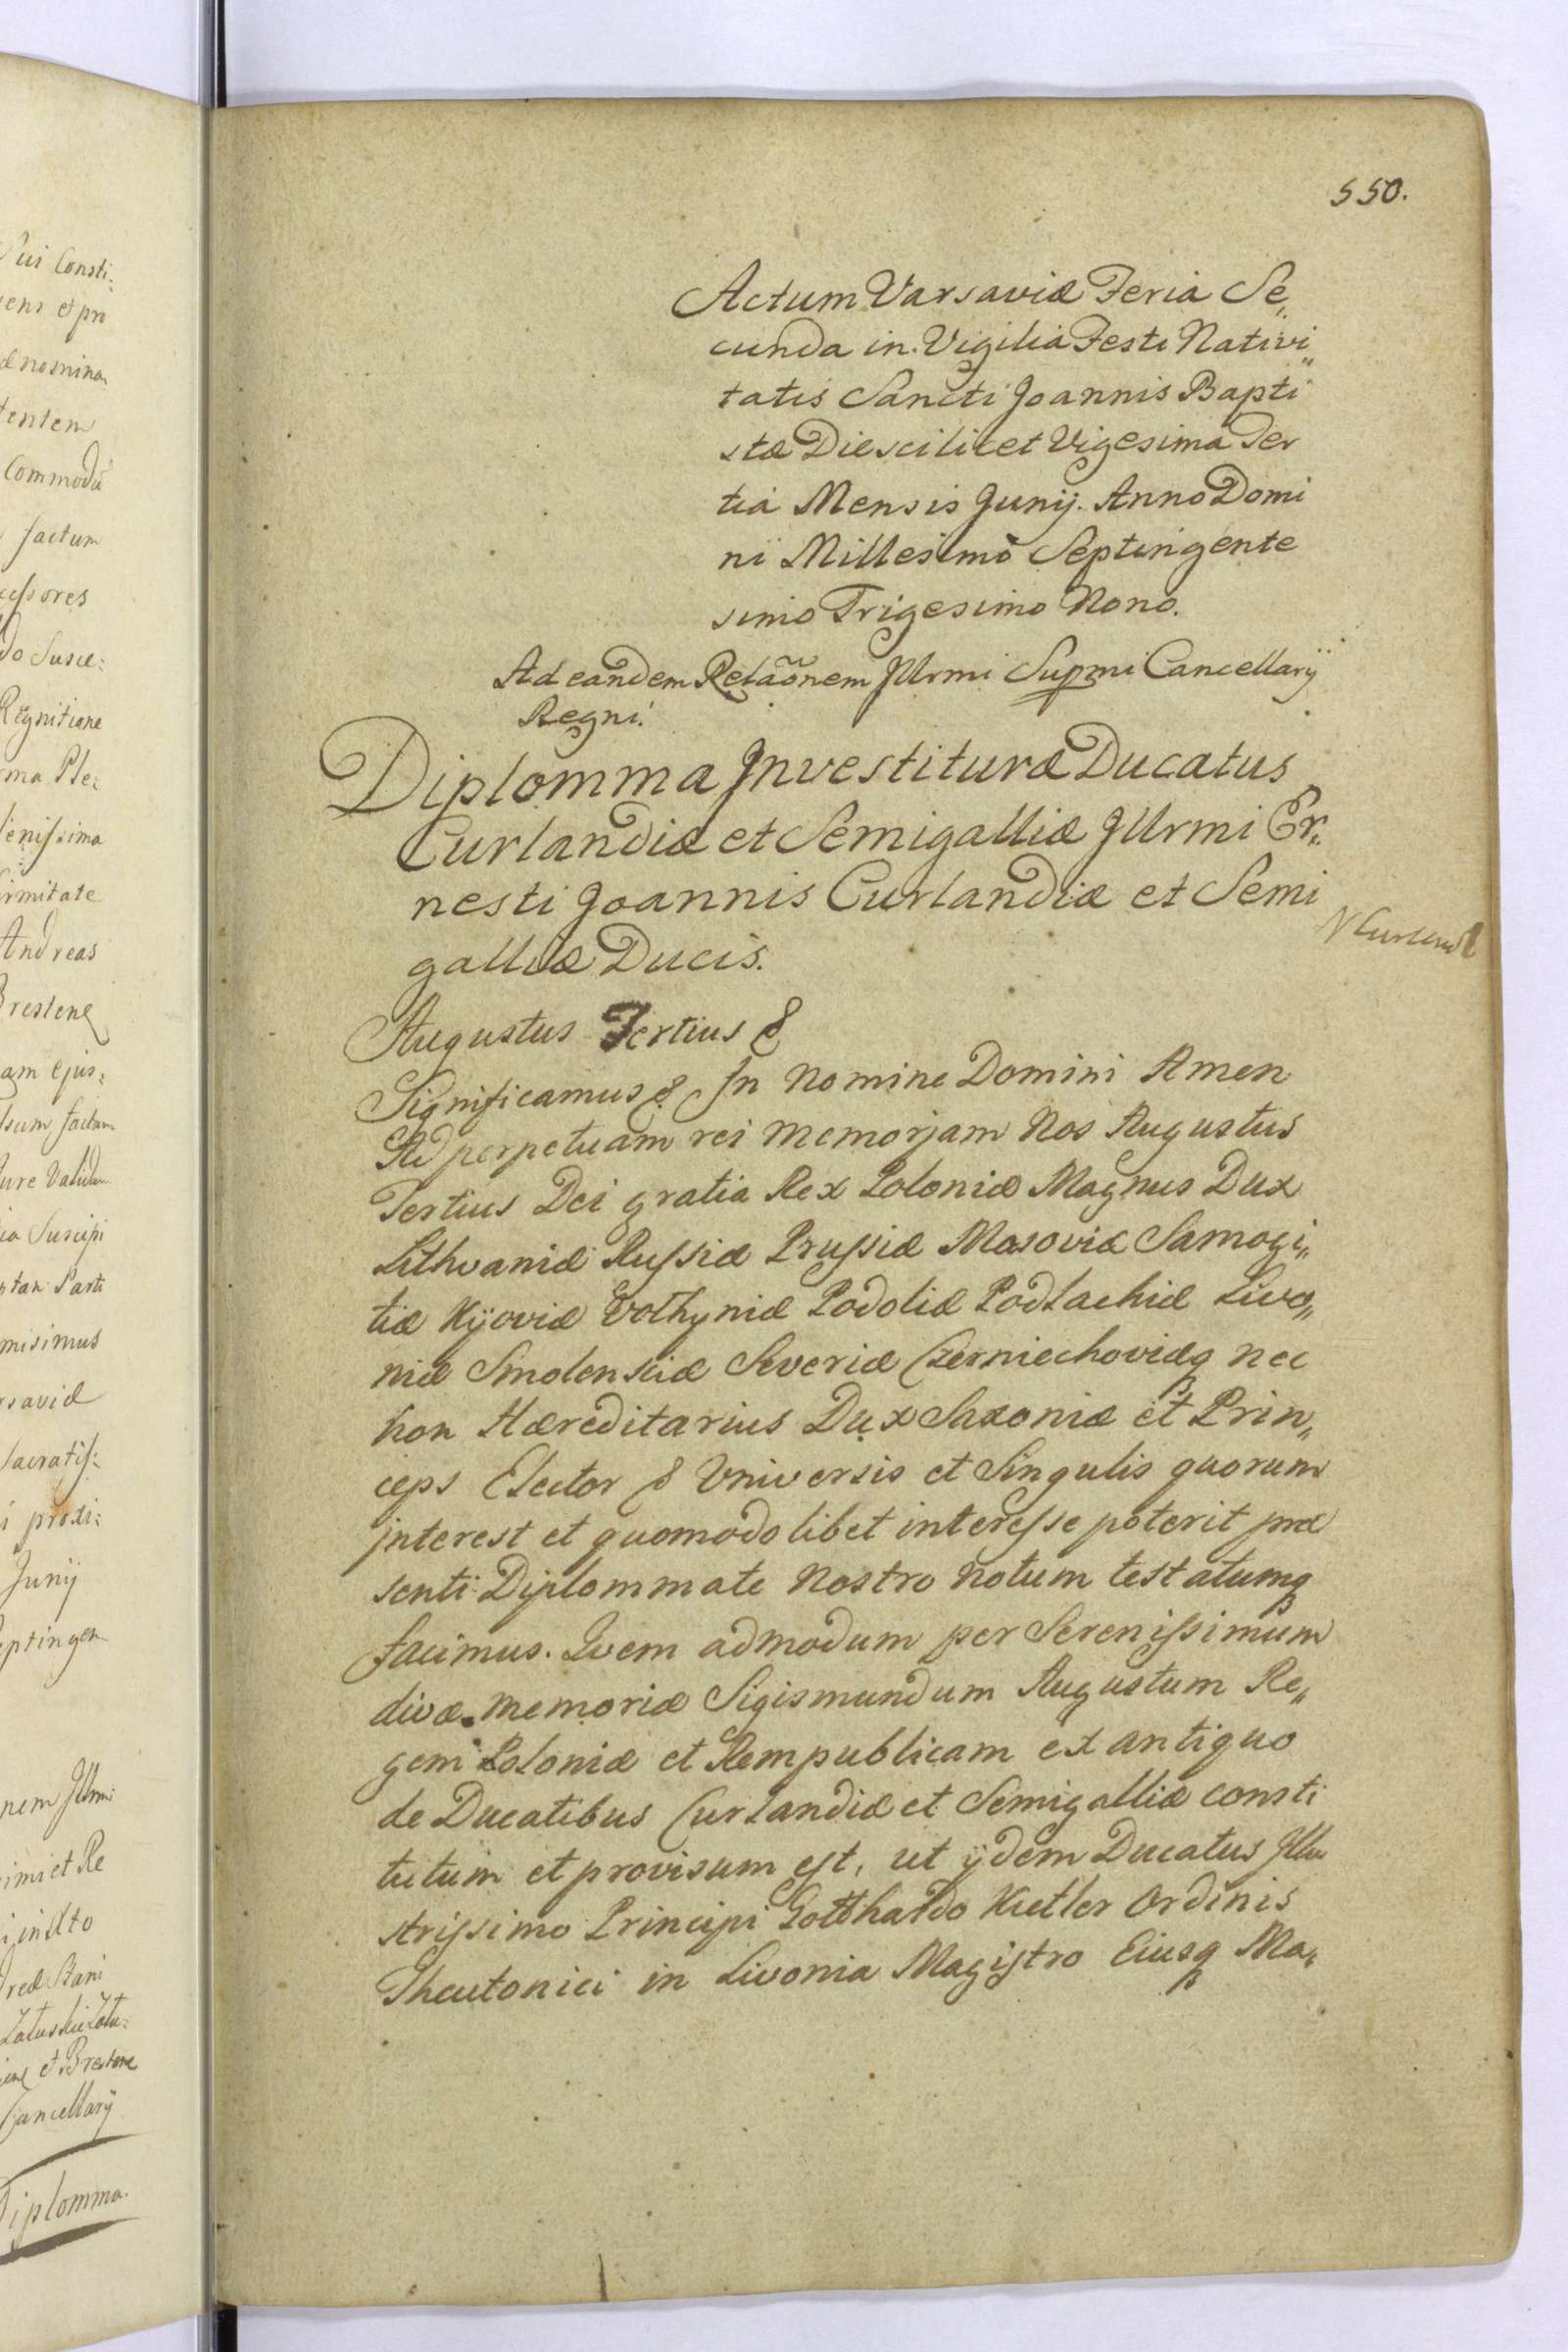 550.
Actum Varsaviæ Feria Se„
cunda in Vigilia Festi Nativi„
tatis Sancti Joannis Bapti
stæ Die scilicet Vigesima Ter
tia Mensis Junij. Anno Domi
ni Millesimo Septingente
simo Trigesimo Nono.
Ad eandem Relaõnem Jllrmi Supmi Cancellarij
Regni.
Diplomma Jnvestituræ Ducatus
Curlandiæ et Semigalliæ Jllrmi Er„
nesti Joannis Curlandiæ et Semi
galliæ Ducis.
Augustus Tertius &
Significamus & Jn Nomine Domini Amen
Ad perpetuam rei memorjam Nos Augustus
Tertius Dei gratia Rex Poloniæ Magnus Dux
Lithvaniæ Russiæ Prussiæ Masoviæ Samogi„
tiæ Kijoviæ Volhyniæ Podoliæ Podlachiæ Livo„
niæ Smolensciæ Severiæ Czerniechoviæq nec
non Hæreditarius Dux Saxoniæ et Prin„
ceps Elector & Vniversis et Singulis quorum
jnterest et quomodolibet interesse poterit præ
senti Diplommate Nostro notum testatumq
facimus. Qvem admodum per Serenissimum
divæ memoriæ Sigismundum Augustum Re„
gem Poloniæ et Rempublicam ex antiquo
de Ducatibus Curlandiæ et Semigalliæ consti
tutum et provisum est, ut ijdem Ducatus Jllu
strissimo Principi Gotthardo Kietler Ordinis
Theutonici in Livonia Magistro Eiusq Ma„
Sui Consti:
ens et pro
nomina
tentem
Commodũ
factum
cessores
do Susce:
Regnitione
ma Ple:
enissima
rmitate
Andreas
am ejus:
sum factam
ure Validam
Suscipi
misimus
Sacratis:
i proxi:
Junij
eptingen
nem Jllmi
imi et Re
et Brestene
Cancellarij
Diplomma.